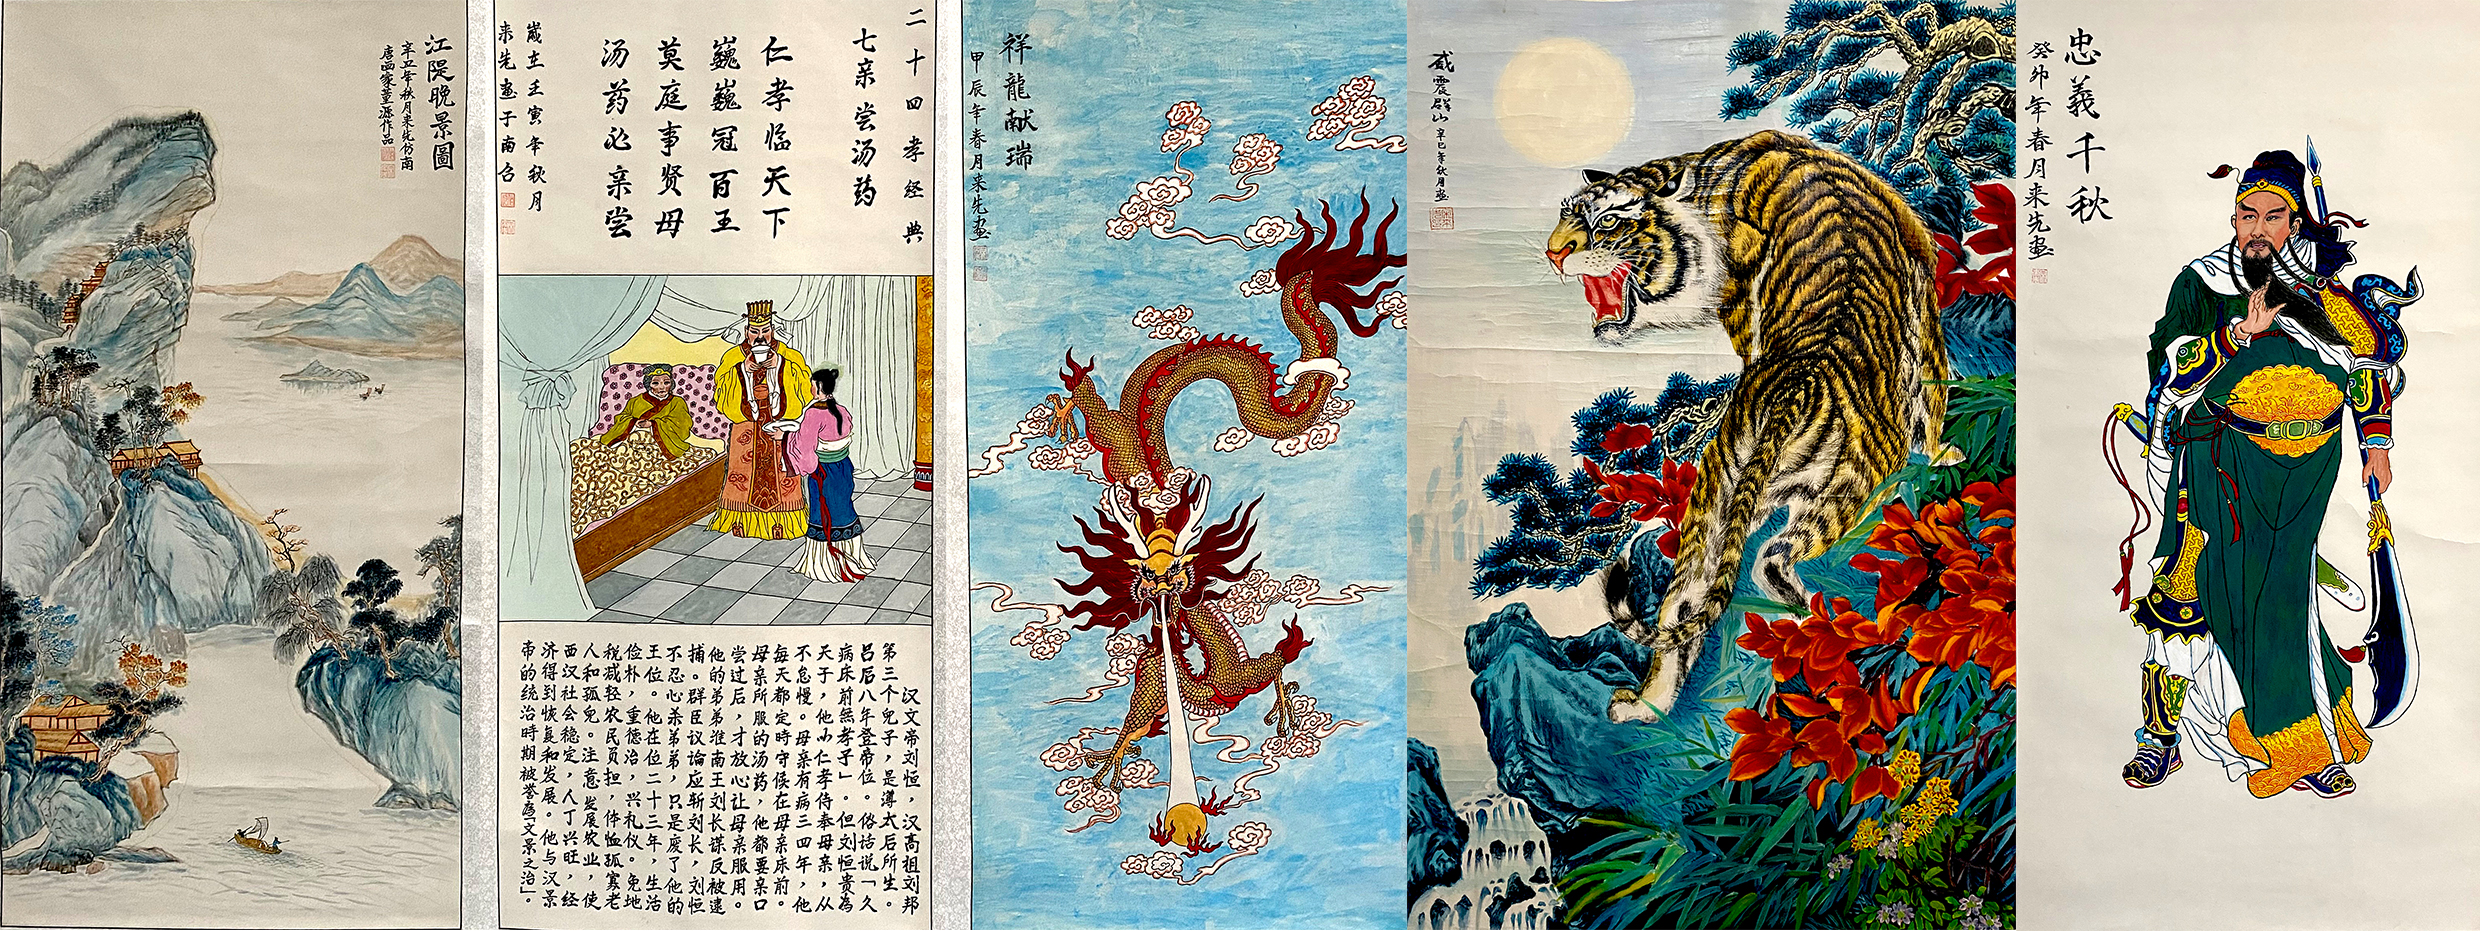 江隄晚景圖
辛丑年秋月来先仿南
唐画家董源作品
二十四孝经典
七亲尝汤药
仁孝临天下
巍巍冠百王
莫庭事贤母
汤药必亲尝
嵗在壬寅年秋月
来先画于南召
汉文帝刘恒，汉高祖刘邦
第三个儿子，是薄太后所生。
吕后八年登帝位。俗话说「久
病床前無孝子」。但刘恒贵為
天子，他以仁孝侍奉母亲，从
不怠慢。母亲有病三四年，他
每天都定時守候在母亲床前。
母亲所服的汤药，他都要亲口
尝过后，才放心让母亲服用。
他的弟弟淮南王刘长谋反被逮
捕。群臣议论应斩刘长，刘恒
不忍心杀弟弟，只是废了他的
王位。他在位二十三年，生活
俭朴，重德治，兴礼仪。免地
税减轻农民负担，体恤孤寡老
人和孤儿。注意发展农业，使
西汉社会稳定，人丁兴旺，经
济得到恢复和发展。他与汉景
帝的统治時期被誉為「文景之治」。
祥龍献瑞
甲辰年春月来先画
威震群山
辛巳年秋月画
忠義千秋
癸卯年春月来先画